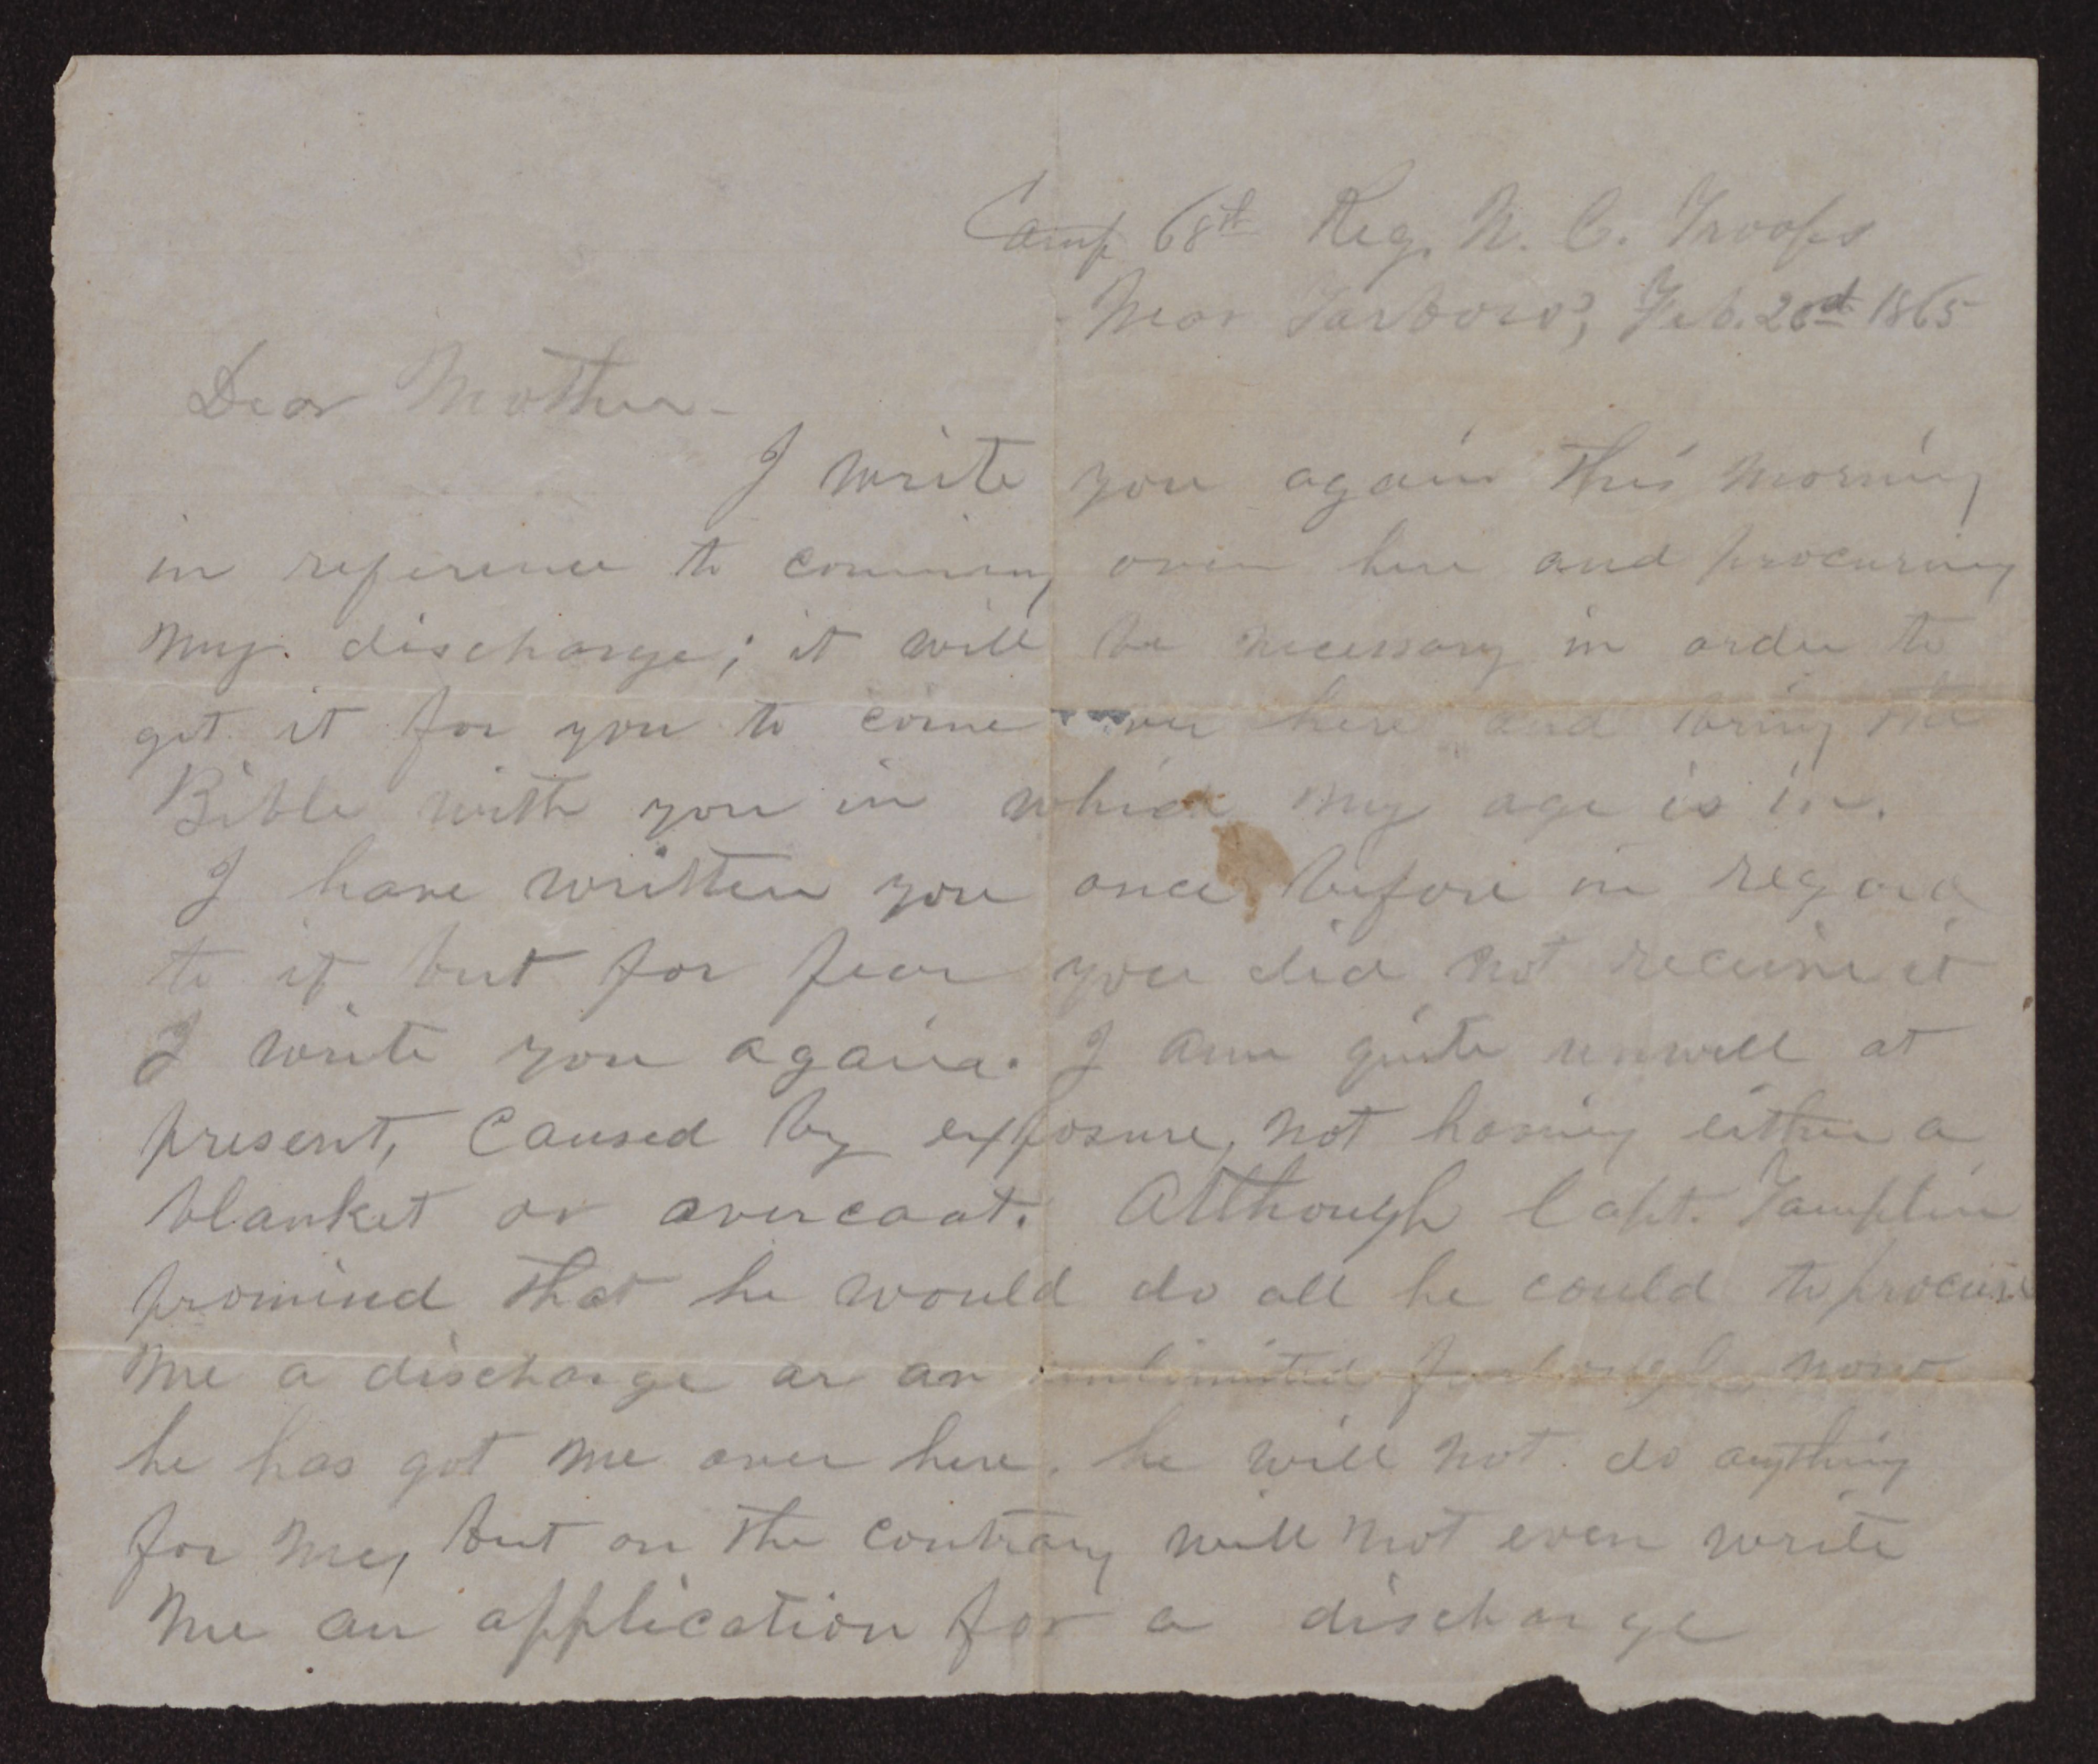 Camp 68th Reg. N. C. Troops
Near Tarboro', Feb. 1865
Dear Mother-
I write you again this morning
in reference to coming over here and procuring
my discharge; it will be necessary in order to
get it for you to come over here and bring the
Bible with you in which my age is in.
I have written you once before in regard
to it but for fear you did not receive it
I write you again. I am quite unwell at
present, caused by exposure, not having either a
blanket or overcoat. Although Capt. Tamplin
promised that he would do all he could to procure
me a discharge or an unlimited furlough now
he has got me over here, he will not do anything
for me, but on the contrary will not even write
me an application for a discharge